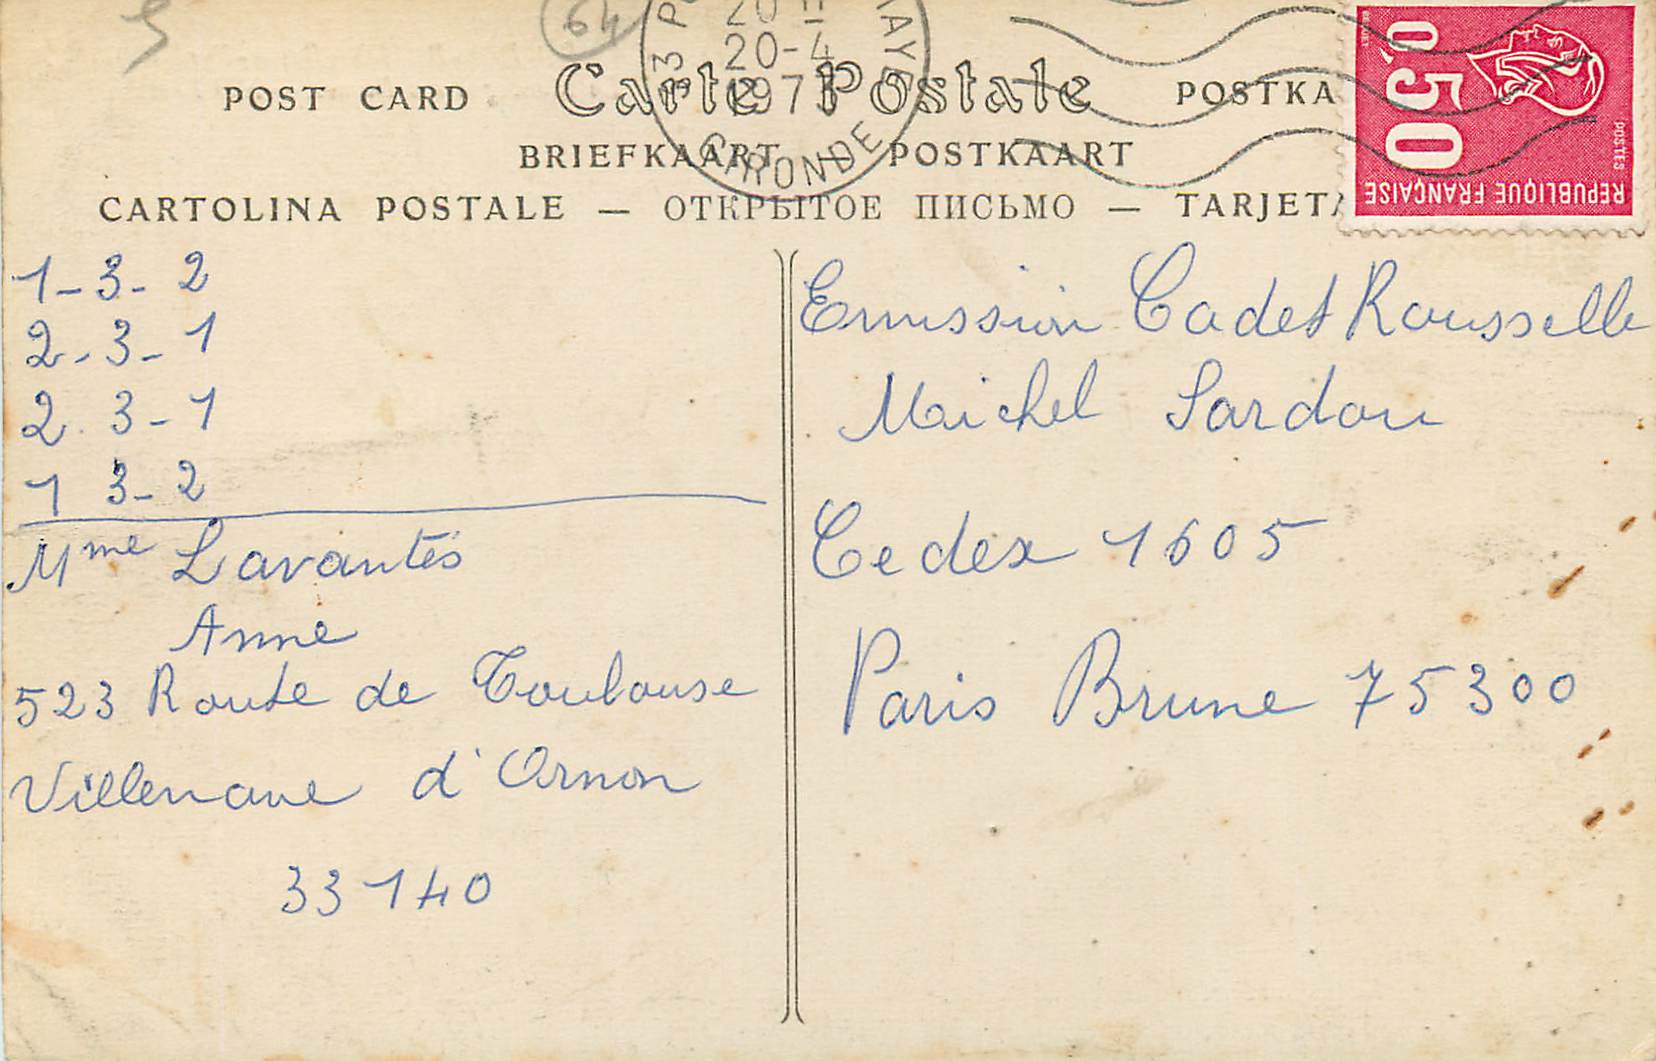 64
20-4
197
GIRONDE
POST CARD Carte Postale POSTKA
BRIEFKAART — POSTKAART
CARTOLINA POSTALE — ОТКРЫТОЕ ПИСЬМО — TARJETA
0,50
POSTES
REPUBLIQUE FRANÇAISE
1-3-2
2-3-1
2.3-1
1 3-2
Mme Lavantès
Anne
523 Route de Toulouse
Villenave d'Ornon
33140
Emission Cadet Rousselle
Michel Sardou
Cedex 1605
Paris Brune 75300